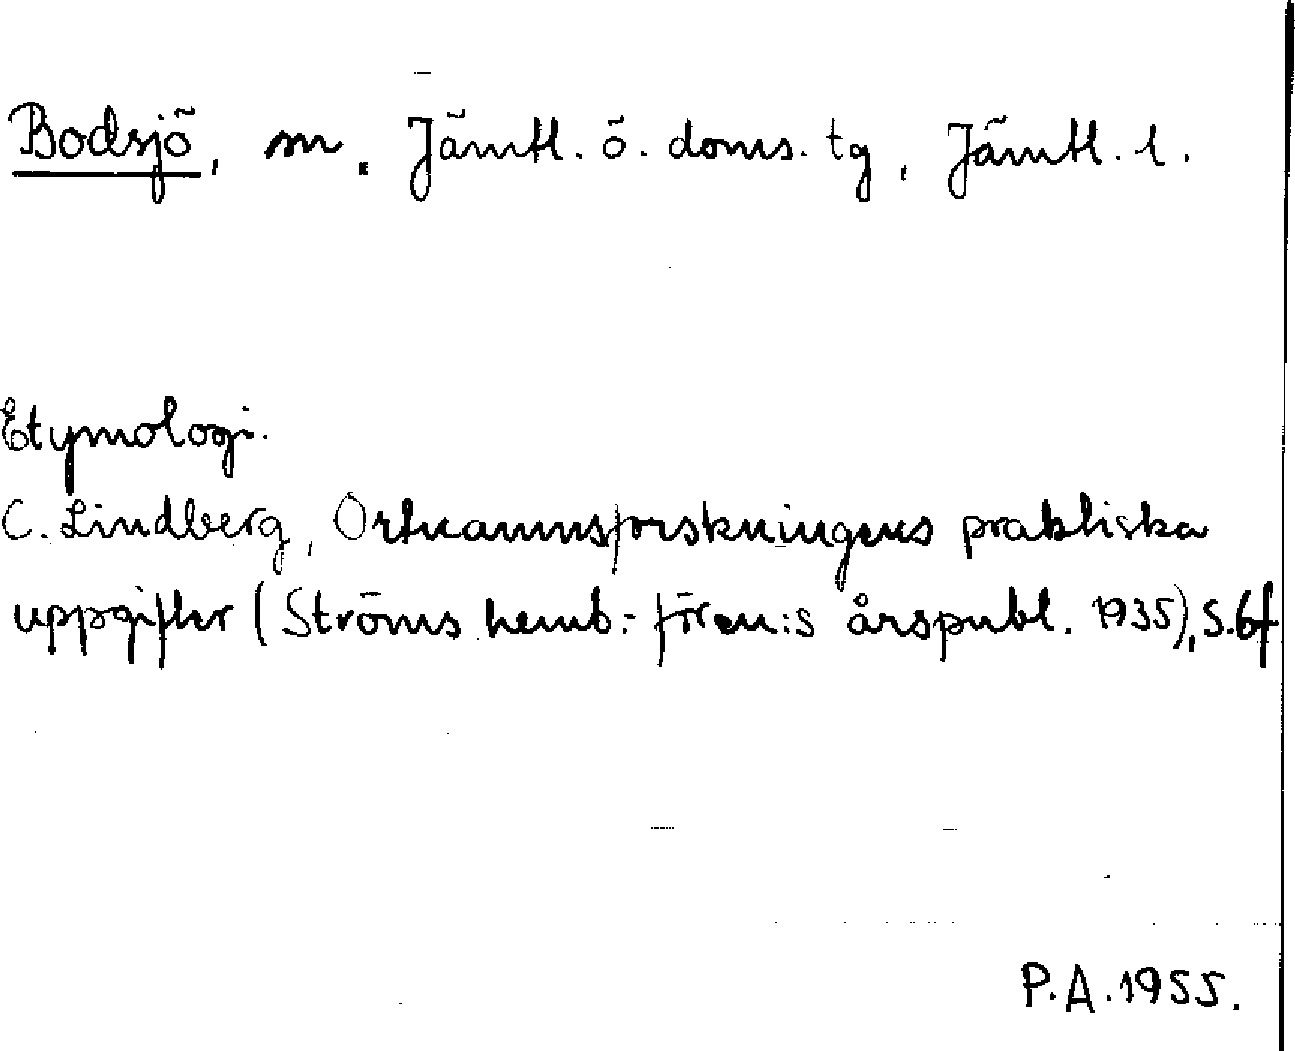 Bodsjö, sn. Jämtl. ö. doms. tg, Jämtl. l.
Etymologi.
C. Lindberg, Ortnamnsforskningens praktiska
uppgifter (Ströms hemb.-fören:s årspubl. 1935), s. 6f
P.A. 1955.